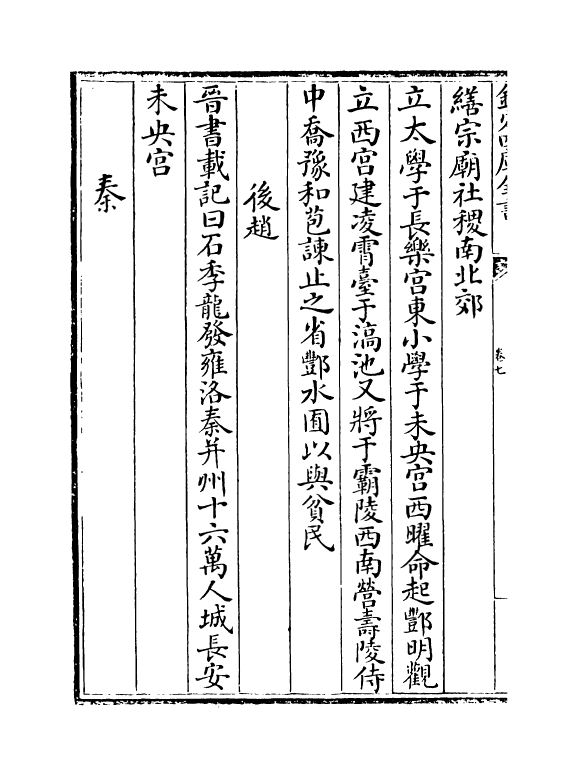 欽定四庫全書
卷七
繕宗廟社稷南北郊
立太學于長樂宮東小學于未央宮西曜命起酆明觀
立西宮建凌霄臺于滈池又將于霸陵西南營壽陵侍
中喬豫和苞諫止之省酆水囿以與貧民
後趙
晉書載記曰石季龍發雍洛秦并州十六萬人城長安
未央宮
秦